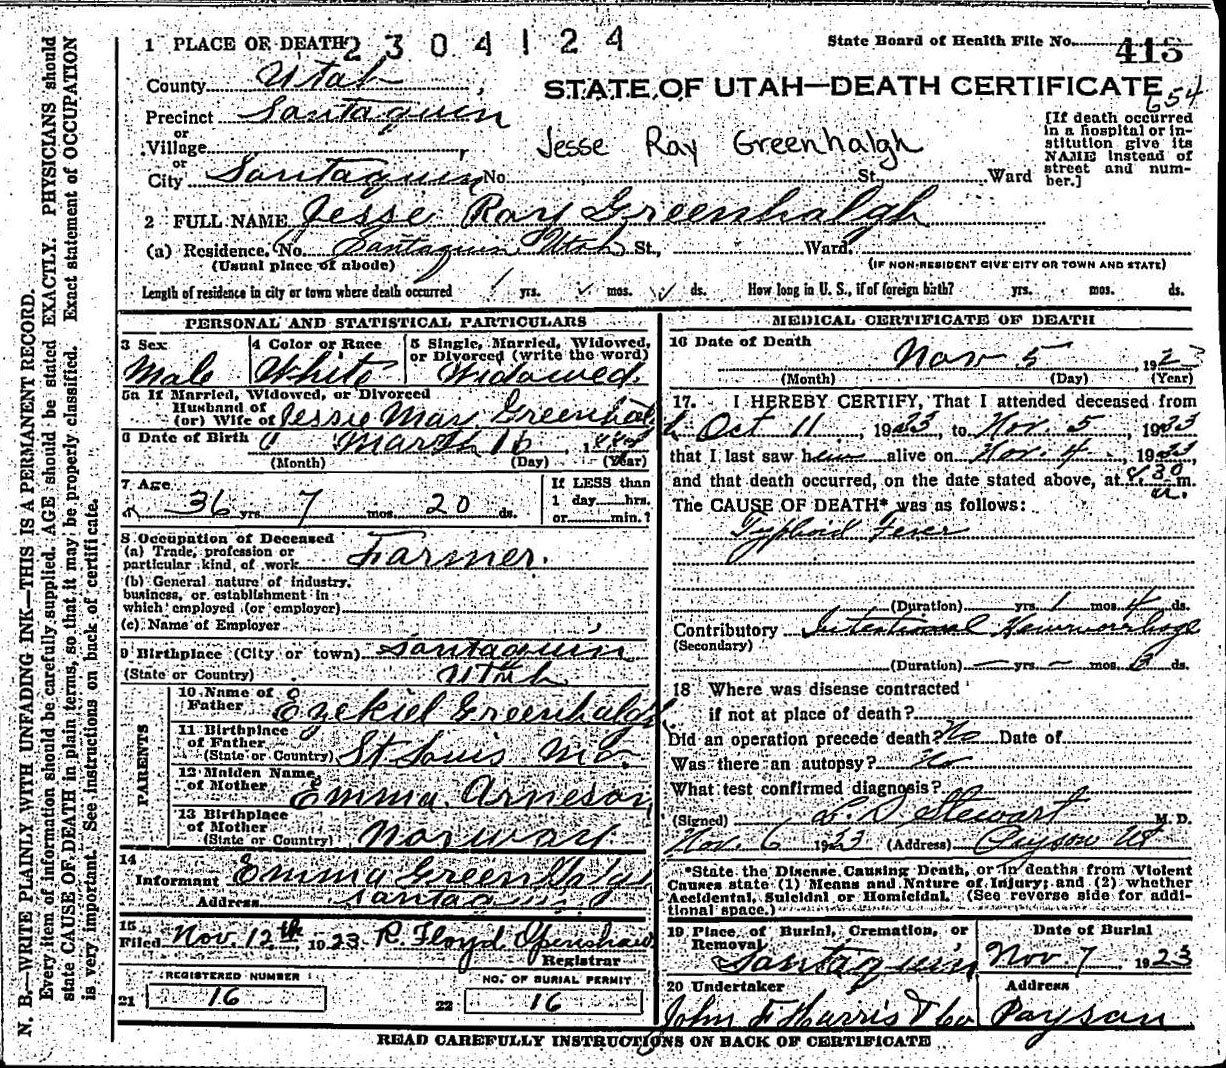 1 PLACE OF DEATH 2304124
State Board of Health File No. 413
County Utah
STATE OF UTAH—DEATH CERTIFICATE
654
Precinct Santaquin
or
Village
or
City Santaquin No. St. Ward
Jesse Ray Greenhalgh
[If death occurred
in a hospital or in-
stitution give its
NAME instead of
street and num-
ber.]
2 FULL NAME Jesse Ray Greenhalgh
(a) Residence. No. Santaquin Utah St., Ward.
(Usual place of abode)
(IF NON-RESIDENT GIVE CITY OR TOWN AND STATE)
Length of residence in city or town where death occurred yrs. mos. ds. How long in U. S., if of foreign birth? yrs. mos. ds.
PERSONAL AND STATISTICAL PARTICULARS
3 Sex
Male
4 Color or Race
White
5 Single, Married, Widowed,
or Divorced (write the word)
Widowed.
5a If Married, Widowed, or Divorced
Husband of
(or) Wife of Jessie May Greenhalgh
6 Date of Birth March 16
(Month) (Day) (Year)
7 Age
36 yrs. 7 mos. 20 ds.
If LESS than
1 day hrs.
or min.?
8 Occupation of Deceased
(a) Trade, profession or
particular kind, of work Farmer.
(b) General nature of industry,
business, or establishment in
which employed (or employer)
(c) Name of Employer
9 Birthplace (City or town) Santaquin
(State or Country) Utah
PARENTS
10 Name of
Father Ezekiel Greenhalgh
11 Birthplace
of Father
(State or Country) St Louis Mo.
12 Maiden Name
of Mother Emma Arneson
13 Birthplace
of Mother
(State or Country) Norway
14
Informant Emma Greenhalgh
Address Santaquin
15
Filed Nov. 12th, 1923 R. Floyd Openshaw
Registrar
REGISTERED NUMBER
21 16
NO. OF BURIAL PERMIT
22 16
MEDICAL CERTIFICATE OF DEATH
16 Date of Death
Nov 5 1923
(Month) (Day) (Year)
17. I HEREBY CERTIFY, That I attended deceased from
Oct 11, 1923, to Nov. 5, 1923
that I last saw him alive on Nov. 4, 1923
and that death occurred, on the date stated above, at 4.30 a.m.
The CAUSE OF DEATH* was as follows:
Typhoid Fever
(Duration) yrs. 1 mos. 4 ds.
Contributory Intestional Hemworrhage
(Secondary)
(Duration) — yrs. – mos. ds.
18 Where was disease contracted
if not at place of death?
Did an operation precede death? No Date of
Was there an autopsy? No
What test confirmed diagnosis?
(Signed) L. D. Stewart M. D.
Nov. 6 1923 (Address) Payson Ut
*State the Disease Causing Death, or in deaths from Violent
Causes state (1) Means and Nature of Injury; and (2) whether
Accidental, Suicidal or Homicidal. (See reverse side for addi-
tional space.)
19 Place of Burial, Cremation, or
Removal
Santaquin
Date of Burial
Nov. 7 1923
20 Undertaker
John F Harris & Co
Address
Payson
READ CAREFULLY INSTRUCTIONS ON BACK OF CERTIFICATE
N. B.—WRITE PLAINLY WITH UNFADING INK—THIS IS A PERMANENT RECORD.
Every item of information should be carefully supplied. AGE should be stated EXACTLY. PHYSICIANS should
state CAUSE OF DEATH in plain terms, so that it may be properly classified. Exact statement of OCCUPATION
is very important. See instructions on back of certificate.